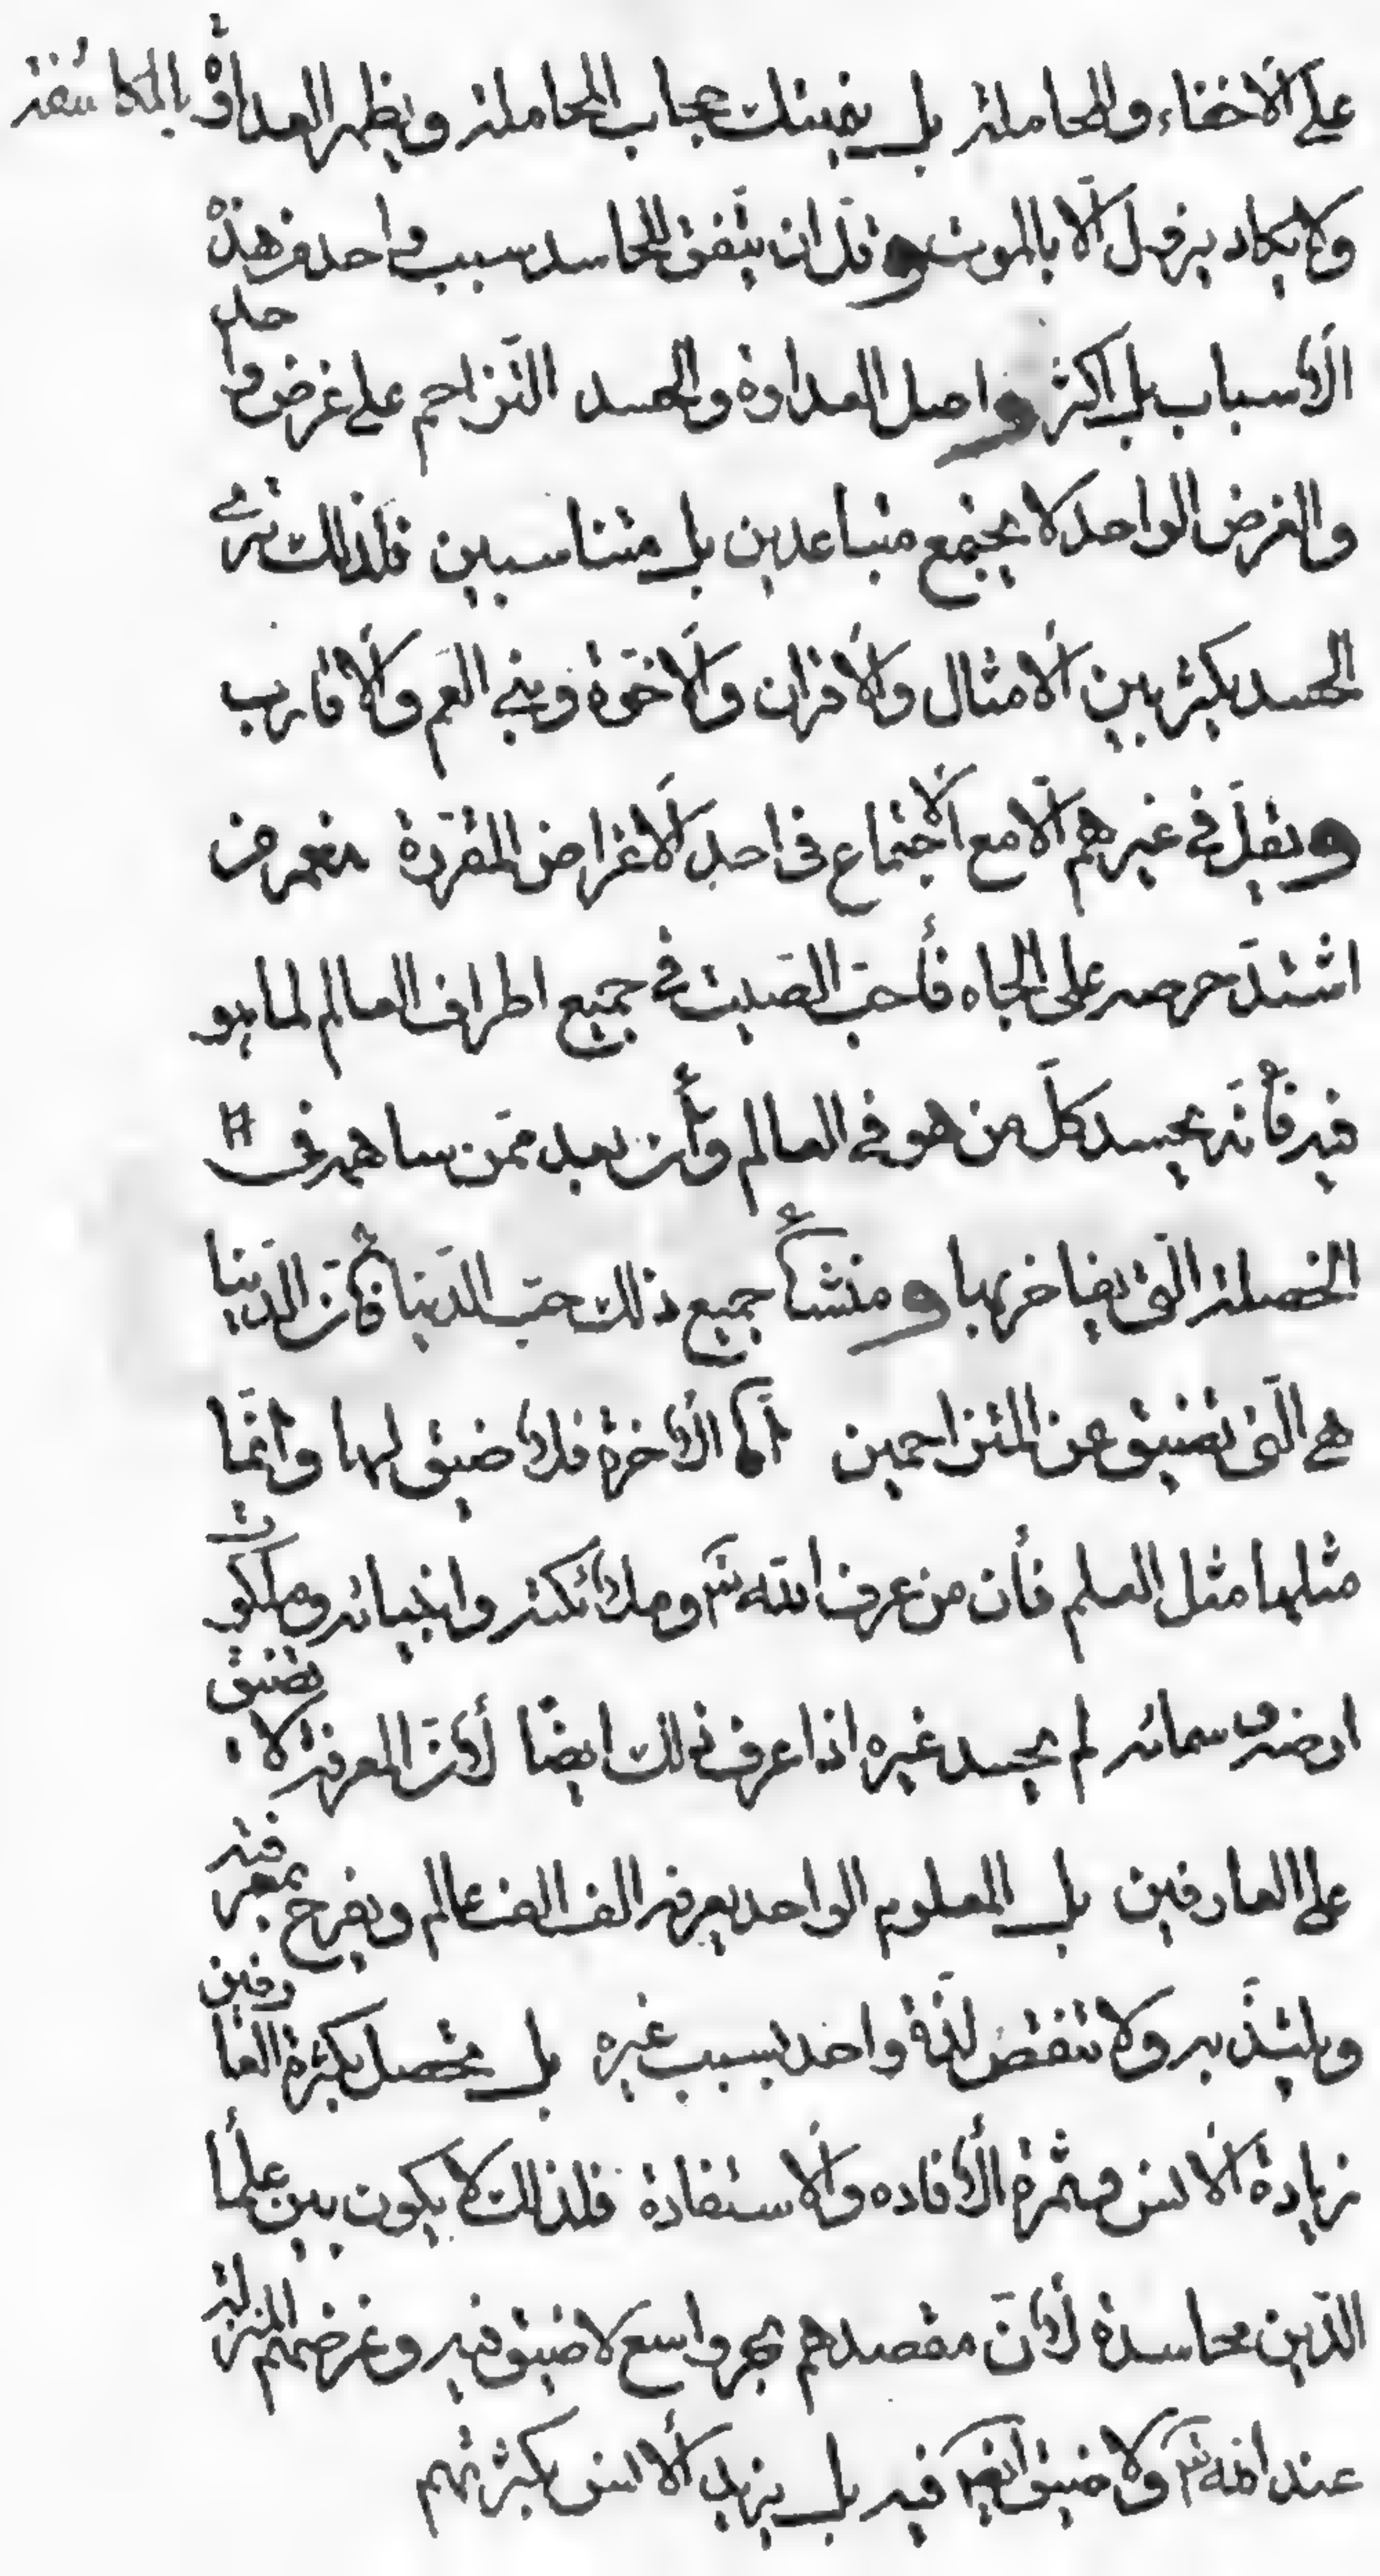 على الاخفاء والمجاملة بل ينهتك حجاب المجاملة ويظهر العداوة بالمكاشفة
ولا يكاد يزول الّا بالموت وقلّ ان يتّفق للحاسد سبب واحد من هذه
الأسباب بل اكثر واصل العداوة والحسد التّزاحم على غرض واحد
والغرض الواحد لا يجتمع متباعدين بل متناسبين فلذلك ترى
الحسد يكثر بين الأمثال والأقران والأخوّة وبني العم والأقارب
ويقلّ في غيرهم الّا مع الأجتماع في احد الأغراض المقرّرة نعم من
اشتدّ حرصه على الجاه فأحبّ الصّيت في جميع اطراف العالم لما هو
فيه فأنّه يحسد كلّ من هو في العالم وأن بعد ممّن ساهمه في
الخصلة الّتى يفاخر بها ومنشأ جميع ذلك حبّ الدّنيا فأنّ الدّنيا
هي الّتى تضيق عن المتزاحمين امّا الأخرة فلا ضيق لها وانّما
مثلها مثل العلم فأن من عرف الله تع وملائكته وانبيائه وملكوت
ارضه وسمائه لم يحسد غيره اذا عرف ذلك ايضًا لأنّ المعرفة لا تضيق
على العارفين بل المعلوم الواحد يعرفه الف الف عالم ويفرح بمعرفته
ويلتذّ به ولا تنقض لذّة واحد بسبب غيره بل يحصل بكثرة العارفين
زيادة الأنس وثمرة الأفاده والأستفادة فلذلك لا يكون بين علمأ
الدّين محاسدة لأنّ مقصدهم بحر واسع لا ضيق فيه وغرضهم المنزلة
عند الله تع ولا ضيق ايضا فيه بل يزيد الأنس بكثرتهم